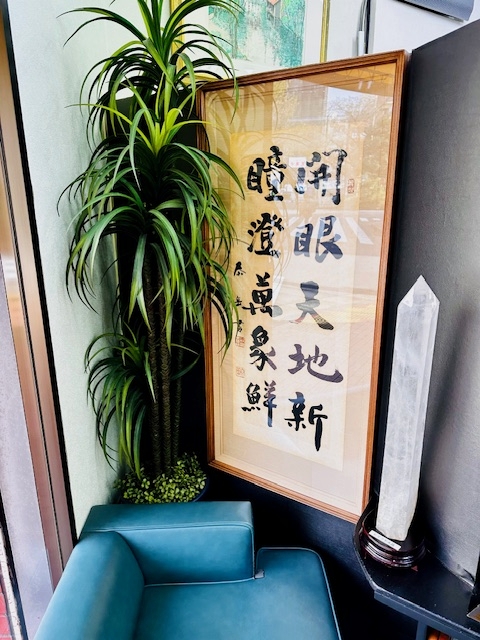 開眼天地新
瞳澄萬象鮮